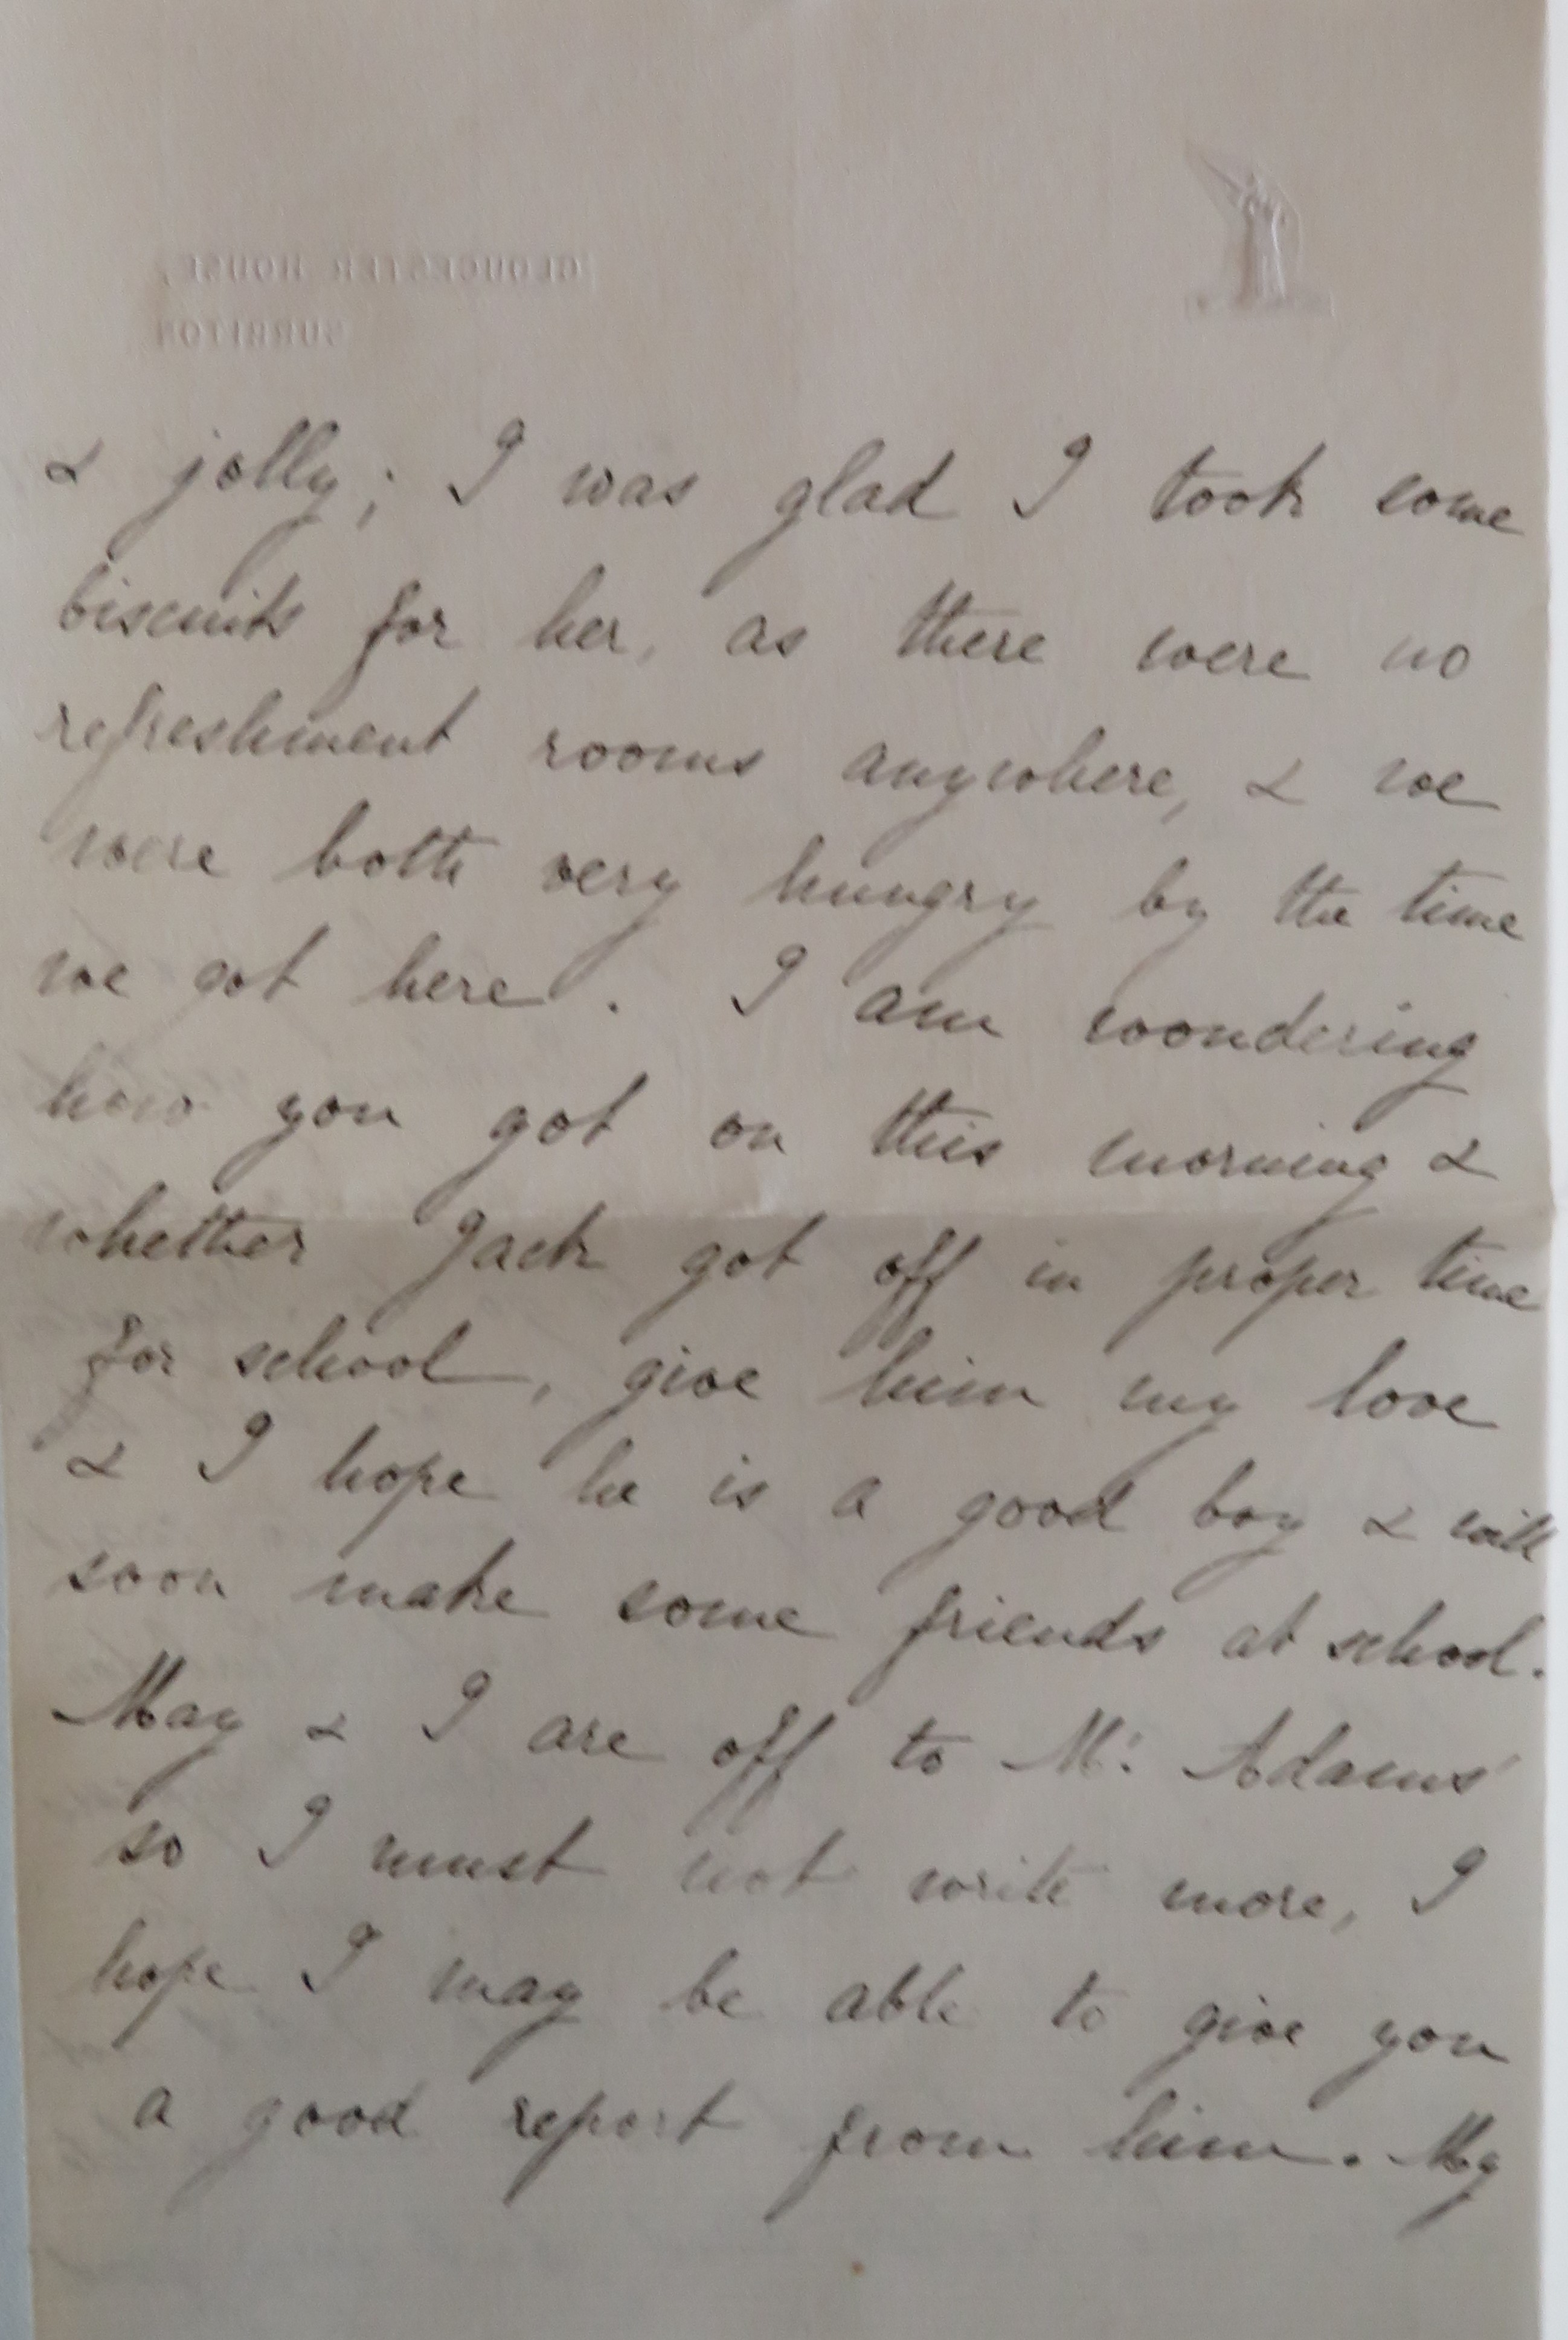 GLOUCESTER HOUSE,
SURBITON
& jolly; I was glad I took some
biscuits for her, as there were no
refreshment rooms anywhere, & we
were both very hungry by the time
we got here. I am wondering
how you got on this morning &
whether Jack got off in proper time
for school, give him my love
& I hope he is a good boy & will
soon make some friends at school.
May & I are off to Mr. Adams'
so I must not write more, I
hope I may be able to give you
a good report from him. My